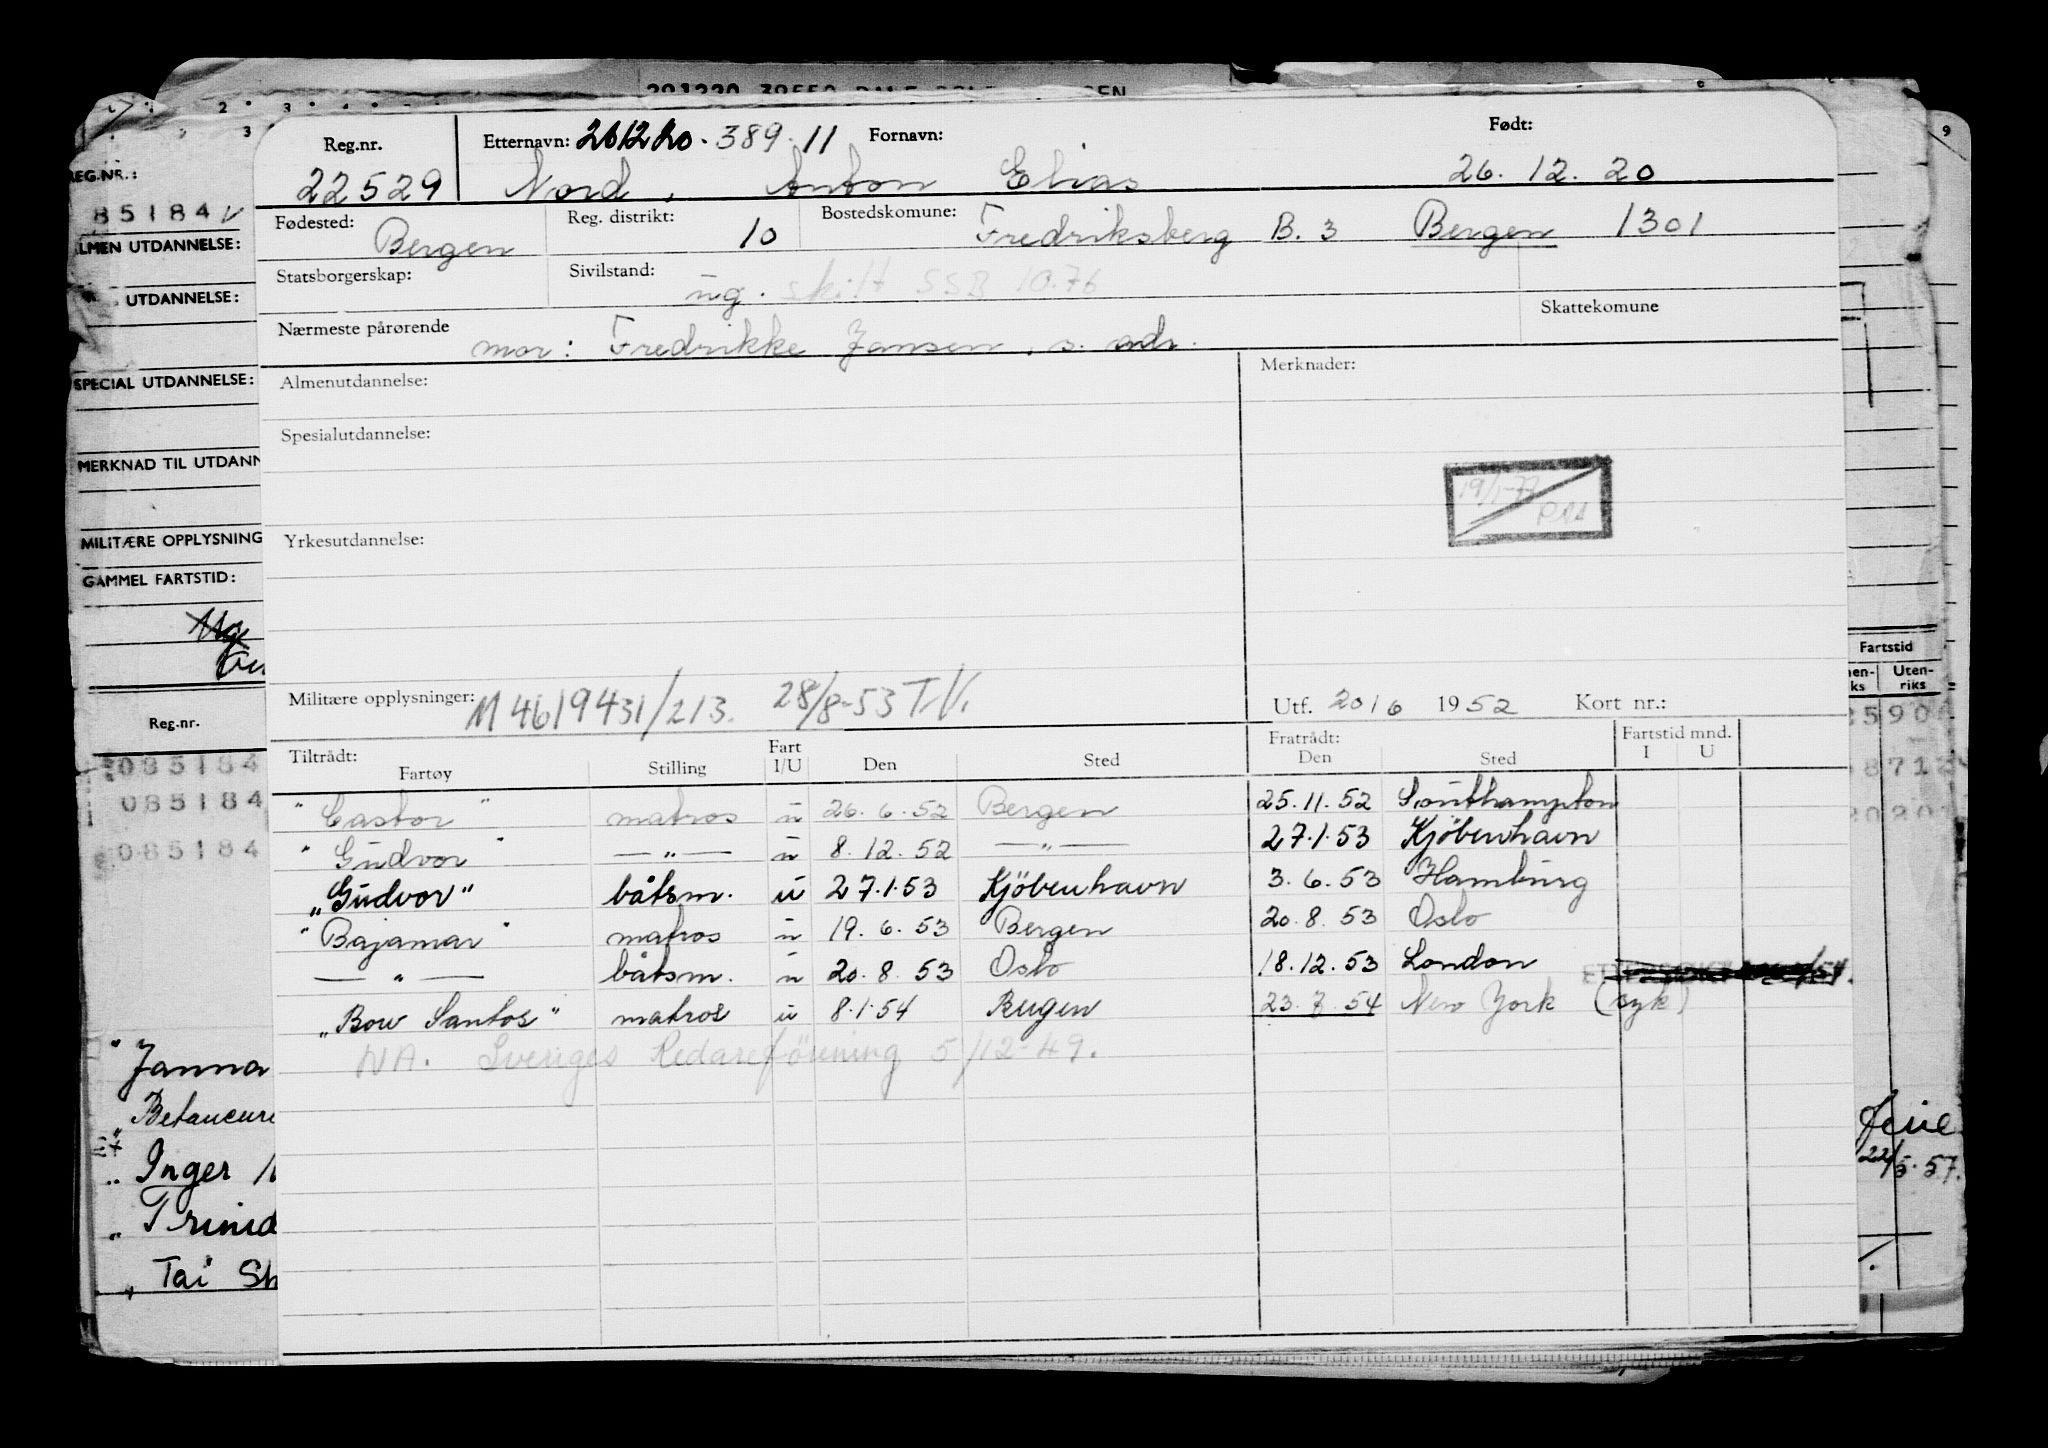 Reg.nr. Etternavn: 261220.389.11 Fornavn: Født:
22529 Nord, Anton Elias 26.12.20
Fødested: Bergen Reg. distrikt: 10 Bostedskomune: Fredriksberg B. 3 Bergen 1301
Statsborgerskap: Sivilstand: ug. skilt SSB 10.76
Nærmeste pårørende mor: Fredrikke Jansen, s. adr. Skattekomune
Almenutdannelse: Merknader:
Spesialutdannelse:
19/1-77
Yrkesutdannelse:
Militære opplysninger: M 4619431/213. 28/8-53 T.V. Utf. 20/6 1952 Kort nr.:
Tiltrådt: Fratrådt: Fartstid mnd.
Fartøy Stilling Fart I/U Den Sted Den Sted I U
"Castor" matros u 26.6.52 Bergen 25.11.52 Southampton
"Gudvor" —"— u 8.12.52 —"— 27.1.53 Kjöbenhavn
"Gudvor" båtsm. u 27.1.53 Kjöbenhavn 3.6.53 Hamburg
"Bajamar" matros u 19.6.53 Bergen 20.8.53 Oslo
—"— båtsm. u 20.8.53 Oslo 18.12.53 London
"Bow Santos" matros u 8.1.54 Bergen 23.7.54 New York (syk)
NA. Sveriges Redareförening 5/12-49.
REG.NR.:
85184
ALMEN UTDANNELSE:
UTDANNELSE:
SPECIAL UTDANNELSE:
MERKNAD TIL UTDANN
MILITÆRE OPPLYSNING
GAMMEL FARTSTID:
Reg.nr.
085184
085184
085184
"Janna
"Betancuri
"Inger
"Trinid
"Tai Sh
Fartstid
Uten-
riks
22/5.57.